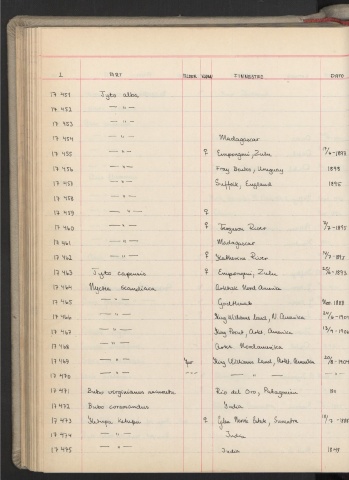 L ART ALDER KJØNN FINNESTED DATO
17 451 Tyto alba
17 452 — " —
17 453 — " —
17 454 — " — Madagascar
17 455 — " — ♀ Empangeni, Zulu
17 456 — " — Fray Bentos, Uruguay 1893
17 457 — " — Suffolk, England 1895
17 458 — " —
17 459 — " — ♀
17 460 — " — ♀ Ferguson River
17 461 — " — Madagascar
17 462 — " — ♀ Katharine River
17 463 Tyto capensis ♀ Empangeni, Zulu
17 464 Nyctea scandiaca Arktisk Nord Amerika
17 465 — " — Godthaab Nov. 1888
17 466 — " — King Williams Land, N. Amerika
17 467 — " — King Point, Arkt. Amerika 13/9 - 1906
17 468 — " — Arkt. Nordamerika
17 469 — " — King Williams Land, Arkt. Amerika
17 470 — " — — " — — " —
17 471 Bubo virginianus Rio del Oro, Patagonia
17 472 Bubo coromandus India
17 473 Ketupa ketupu ♀ Sumatra
17 474 — " — India
17 475 — " — India 1845